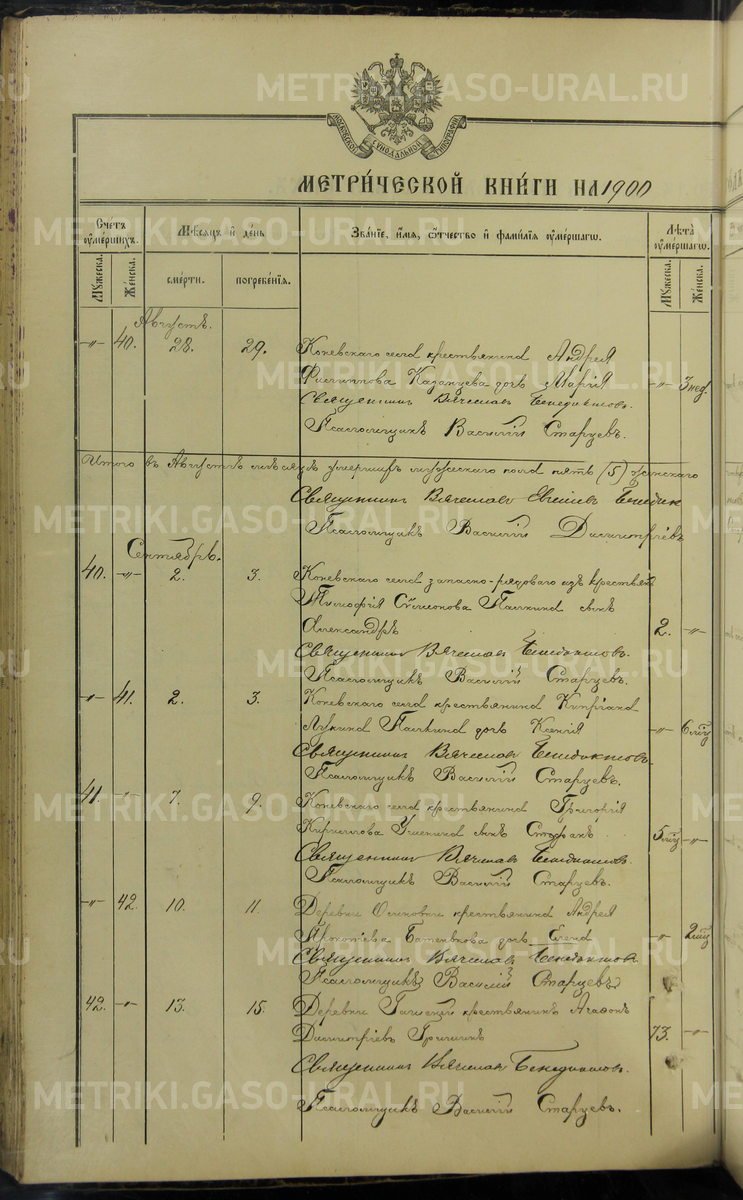 МОСКОВСКОЙ СѴНОДАЛЬНОЙ ТИПОГРАФІИ
МЕТРИ́ЧЕСКОЙ КНИ́ГИ НА 1900
Сче́тъ ᲂу҆ме́ршихъ.
Мѣ́сяцъ и҆ де́нь
Зва́нїе, и҆́мя, ѻ҆́тчество и҆ фами́лїя ᲂу҆ме́ршагѡ.
Лѣ́та ᲂу҆ме́ршагѡ.
Мꙋ́жеска.
Же́нска.
сме́рти.
погребе́нїя.
Мꙋ́жеска.
Же́нска.
Августъ.
-"- 40. 28. 29. Коневскаго села крестьянина Андрея
Филиппова Казанцева дочь Марія -"- 3 нед.
Священникъ Вячеславъ Бенедиктовъ.
Псаломщикъ Василій Старцевъ.
Итого въ Августѣ мѣсяцѣ умершихъ мужескаго пола пять (5) женскаго
Священникъ Вячеславъ
Псаломщикъ Василій
Сентябрь.
40. -"- 2. 3. Коневскаго села запасно-рядоваго изъ крестьянъ
Тимофея Симонова Палкина сынъ
Александръ 2. -"-
Священникъ Вячеславъ Бенедиктовъ.
Псаломщикъ Василій Старцевъ.
-"- 41. 2. 3. Коневскаго села крестьянина Кипріана
Лукина Палкина дочь Ксенія -"- 6
Священникъ Вячеславъ Бенедиктовъ.
Псаломщикъ Василій Старцевъ.
41. -"- 7. 9. Коневскаго села крестьянина Григорія
Кириллова сынъ Стефанъ 5 -"-
Священникъ Вячеславъ Бенедиктовъ.
Псаломщикъ Василій Старцевъ.
-"- 42. 10. 11. Деревни Осиновки крестьянина Андрея
Прокопіева Батенькова дочь Елена -"- 2
Священникъ Вячеславъ Бенедиктовъ
Псаломщикъ Василій Старцевъ
42. -"- 13. 15. Деревни крестьянинъ Агафонъ
Димитріевъ 73. -"-
Священникъ Вячеславъ Бенедиктовъ.
Псаломщикъ Василій Старцевъ.
METRIKI.GASO-URAL.RU